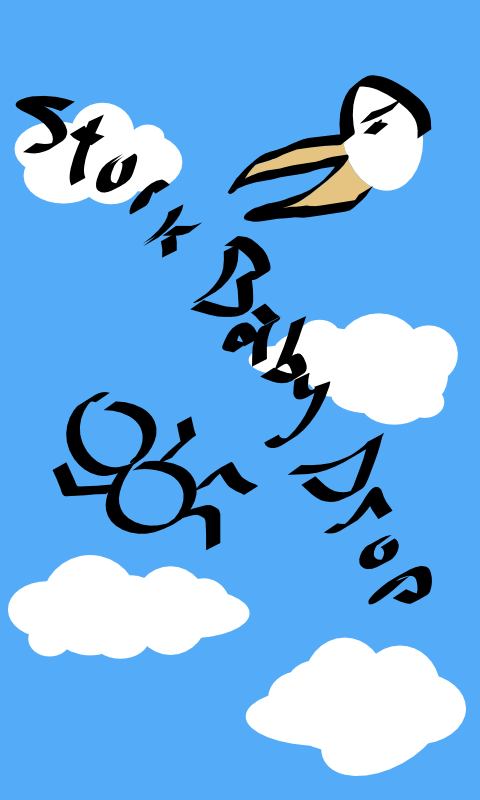 Stork Baby Drop